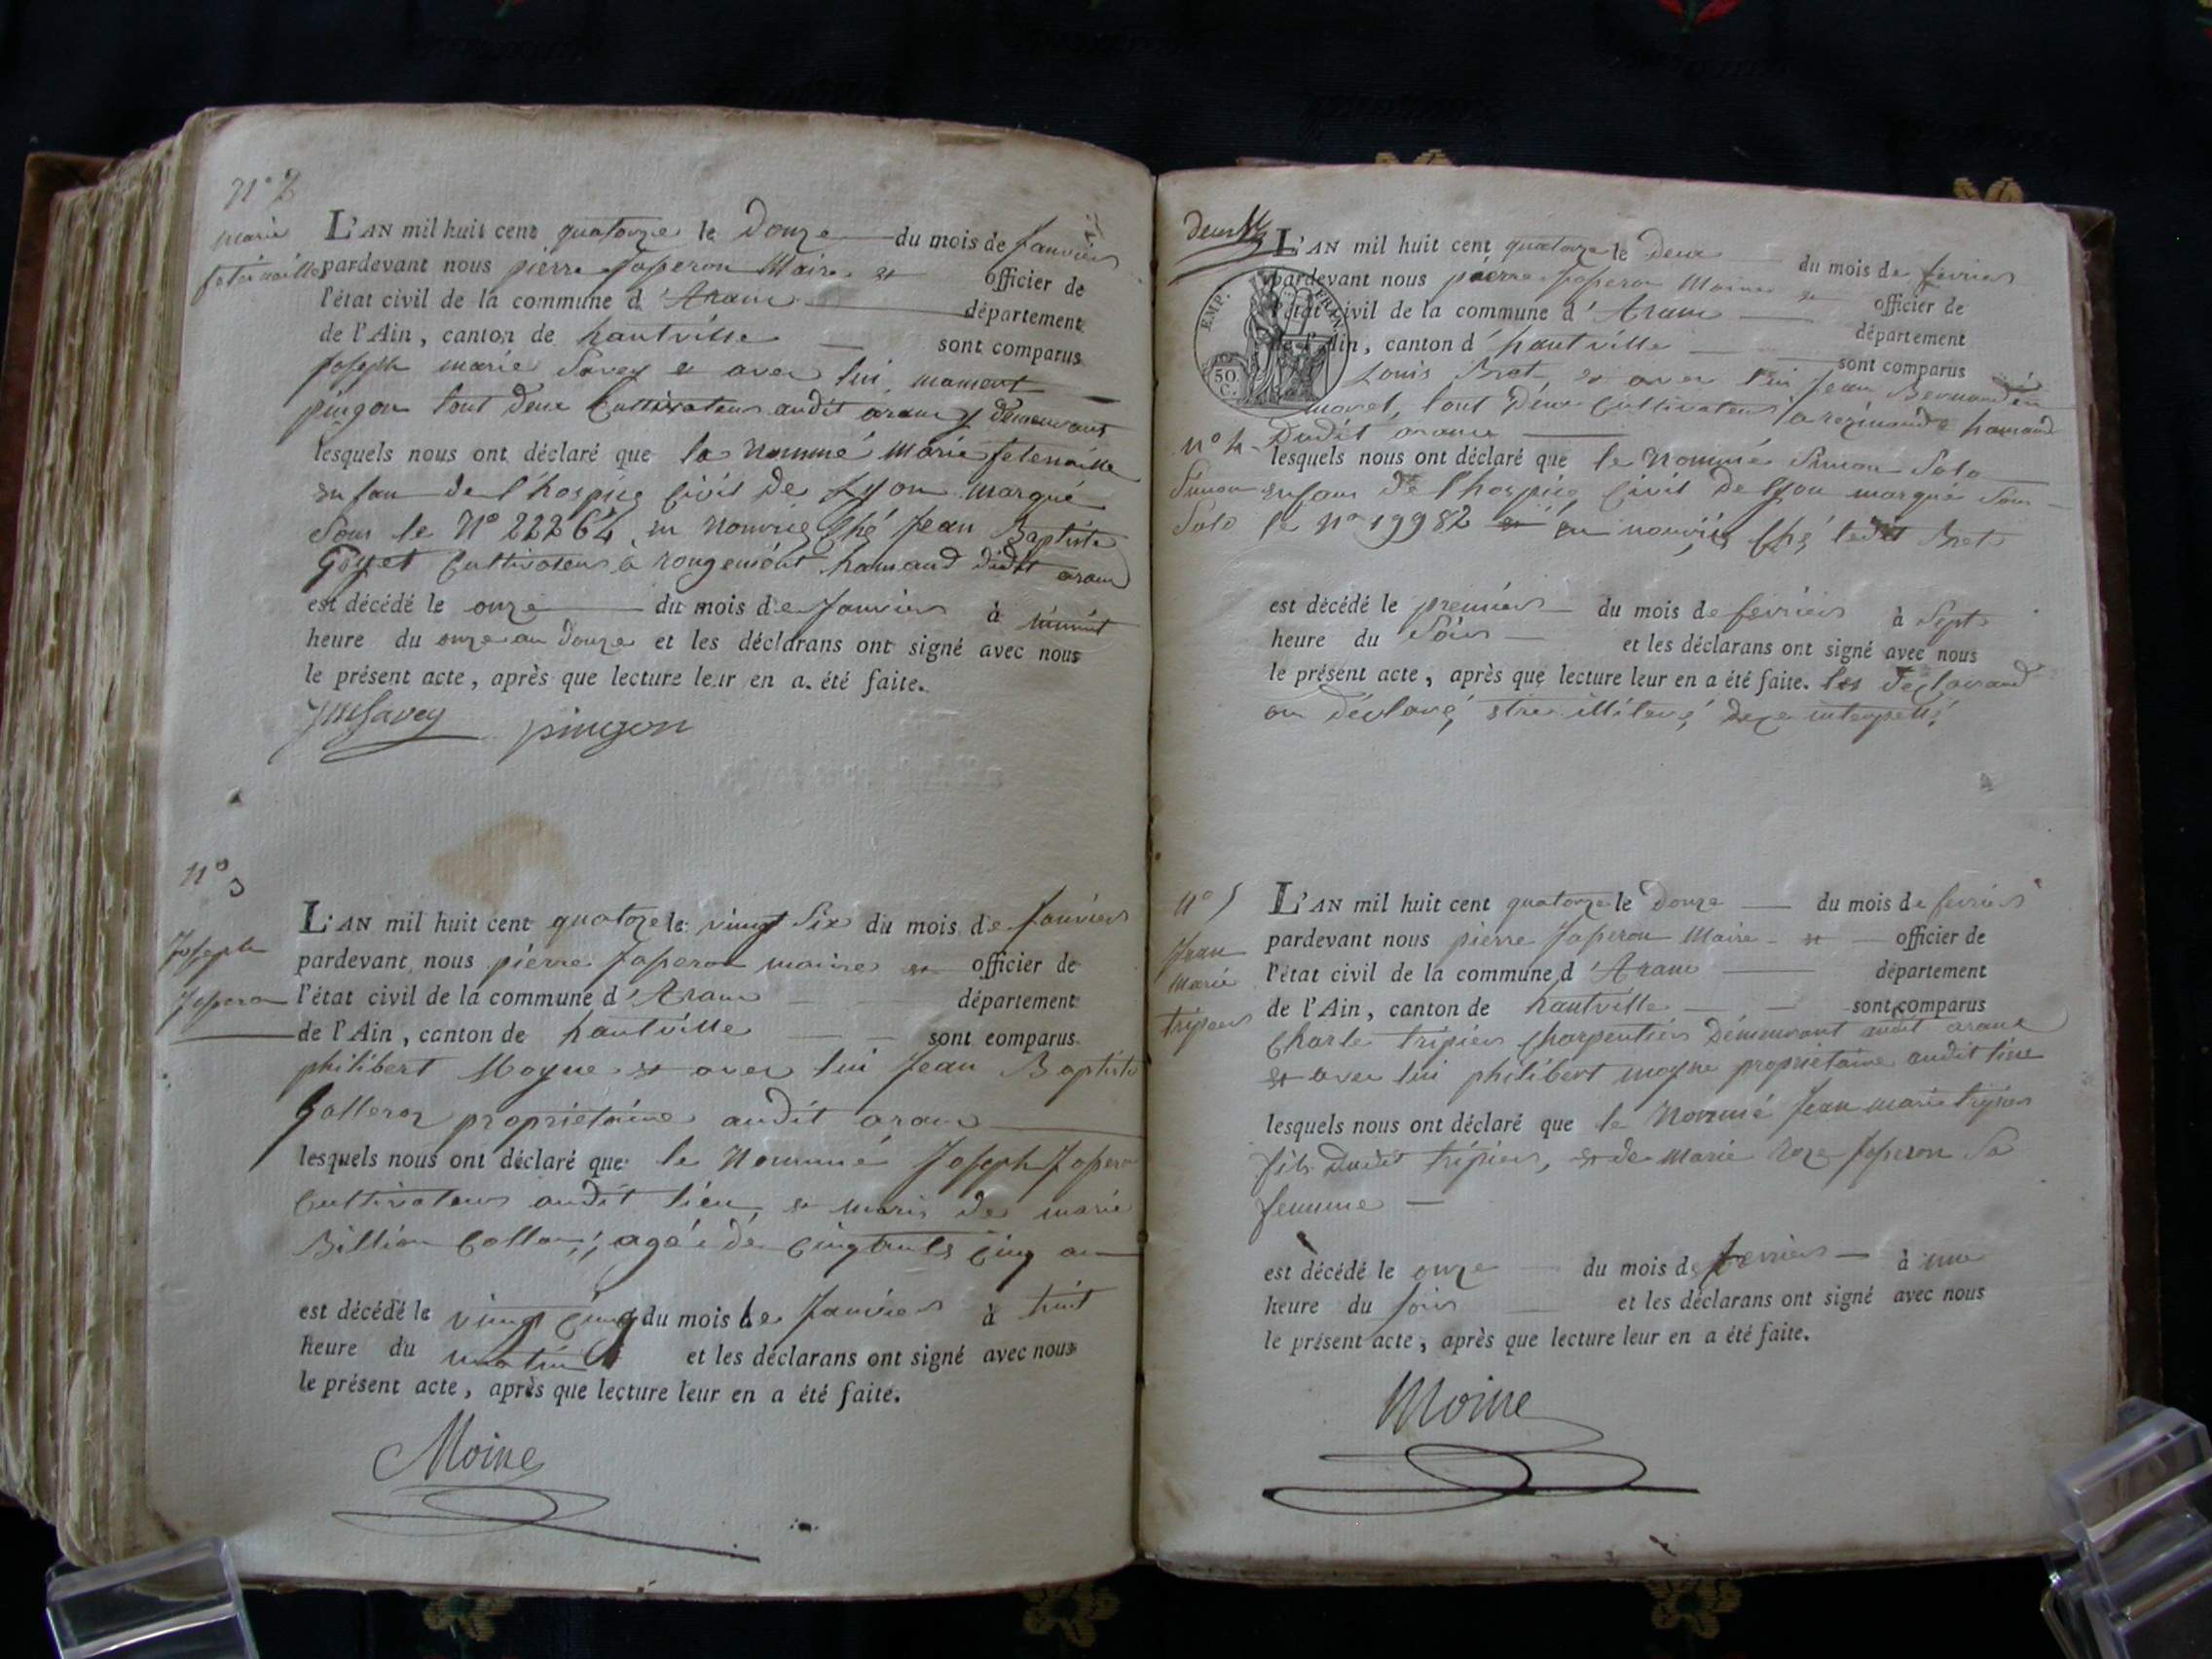 N° 2
marie
L'AN mil huit cent quatorze le Douze du mois de Janvier
pardevant nous pierre Joperon Maire et officier de
l'état civil de la commune d'Aranc département
de l'Ain, canton de hautville sont comparus
Joseph marie Savey et avec lui mament
pingon tout deux Cultivateur audit aranc y demeurant
lesquels nous ont déclaré que la Nommé Marie fetenaille
enfan de l'hospice Civil de Lyon marqué
Sous le N° 22264, en nourrie Ché Jean Baptiste
Goyet Cultivateur à rougemont hamaud dudit aranc
est décédé le onze du mois de Janvier à minuit
heure du onze au douze et les déclarans ont signé avec nous
le présent acte, après que lecture leur en a été faite.
JMSavey pingon
N° 3
Joseph
Joperon
L'AN mil huit cent quatorze le vingt Six du mois de Janvier
pardevant nous pierre Joperon maire et officier de
l'état civil de la commune d'Aranc département
de l'Ain, canton de hautville sont comparus
philibert Moyne et avec lui Jean Baptiste
propriétaire audit aranc
lesquels nous ont déclaré que le Nommé Joseph Joperon
Cultivateur audit lieu, et maris de marie
Billion agée de Cinquante Cinq an
est décédé le vingt Cinq du mois de Janvier à huit
heure du matin et les déclarans ont signé avec nous
le présent acte, après que lecture leur en a été faite.
Moine
L'AN mil huit cent quatorze le Deux du mois de fevrier
pardevant nous pierre Joperon Maire et officier de
l'état civil de la commune d'Aranc département
de l'Ain, canton d'hautville sont comparus
EMP. FRAN.
50.
C.
Louis Bret et avec lui Jean Bernardin
morel, tout Deux Cultivateur à resinand hamaud
Dudit aranc
N° 4
Simon
Solo
lesquels nous ont déclaré que le Nommé Simon Solo
enfan de l'hospice Civil de Lyon marqué Sous
le N° 19982 en nourrie Ché ledit Bret
est décédé le premier du mois de fevrier à Sept
heure du Soir et les déclarans ont signé avec nous
le présent acte, après que lecture leur en a été faite. les déclarand
on déclaré être illiteré de ce interpellé
N° 5
Jean
Marie
tripier
L'AN mil huit cent quatorze le Douze du mois de fevrier
pardevant nous pierre Joperon Maire et officier de
l'état civil de la commune d'Aranc département
de l'Ain, canton de hautville sont comparus
Charle tripier Charpentier Démeurant audit aranc
et avec lui philibert moyne propriétaire audit lieu
lesquels nous ont déclaré que le Nommé Jean marie tripier
fils Dudit tripier, et de Marie Roze Joperon Sa
femme
est décédé le onze du mois de fevrier à une
heure du soir et les déclarans ont signé avec nous
le présent acte, après que lecture leur en a été faite.
Moine